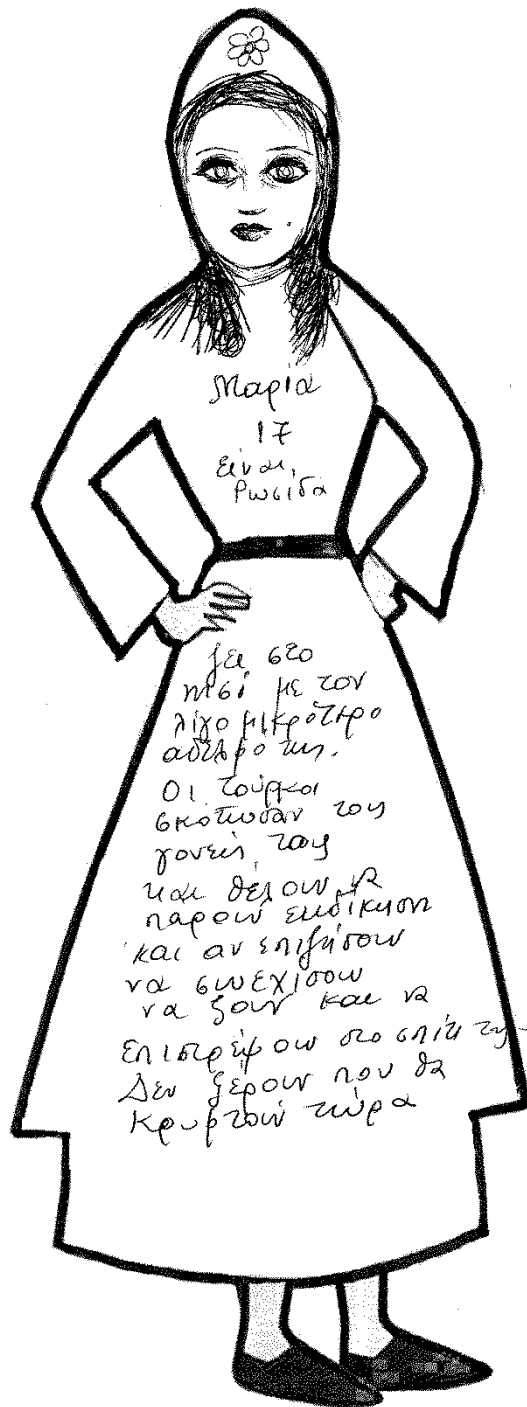 Μαρία
17
Είναι
Ρωσίδα
ζει στο
νησί με τον
λίγο μικρότερο
αδερφό της.
Οι τούρκοι
σκότωσαν τους
γονείς τους
και θέλουν να
παρουν εκδίκηση
και αν επιζήσουν
να συνεχίσουν
να ζουν και να
επιστρέψουν στο σπίτι τους.
Δεν ξέρουν που θα
κρυφτούν τώρα